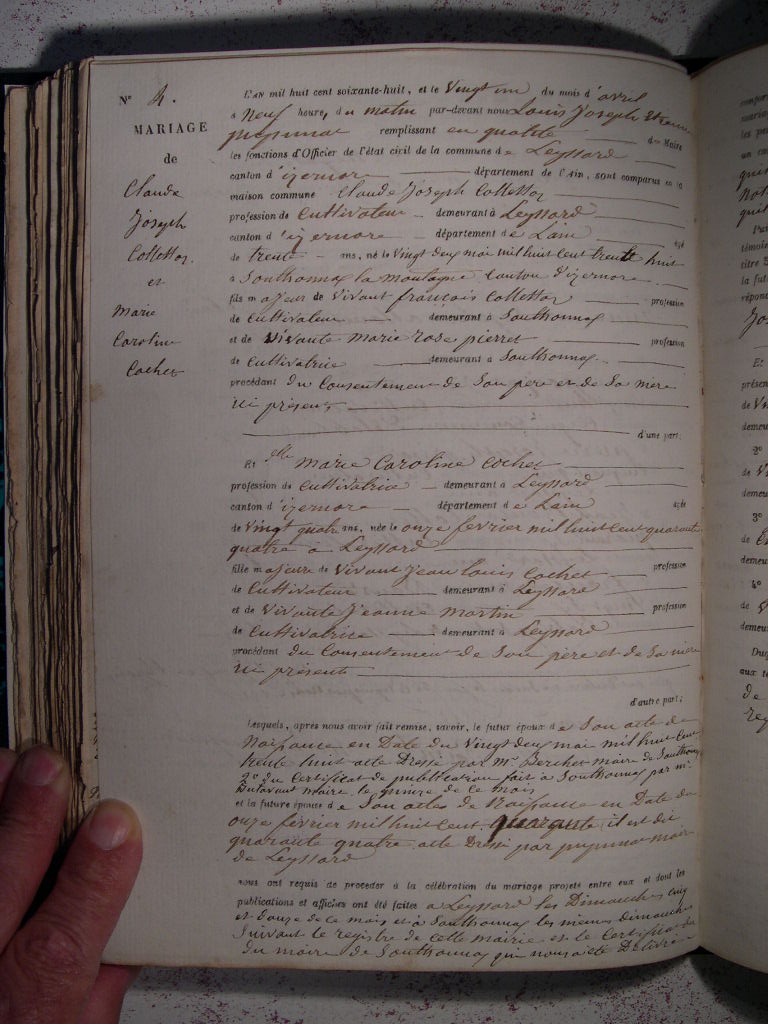 N° 4.
MARIAGE
de
Claude
Joseph
Collettoz.
et
Marie
Caroline
Cochet
L'AN mil huit cent soixante-huit, et le Vingt un du mois d'avril
à Neuf heure, du matin par-devant nous Louis Joseph
remplissant en qualité de Maire
les fonctions d'Officier de l'état civil de la commune de Leyssard
canton d'izernore département de l'Ain, sont comparus en la
maison commune Claude Joseph Collettoz
profession de Cultivateur demeurant à Leyssard
canton d'izernore département de Lain âgé
de trente ans, né le Vingt deux mai mil huit cent trente huit
à Southonnax la montagne Canton d'izernore
fils majeur de Vivant françois Collettoz profession
de Cultivateur demeurant à Southonnax
et de Vivante Marie rose pierret profession
de Cultivatrice demeurant à Southonnax
procédant du Consentement de Son père et de Sa mère
ici présents
d'une part;
Et elle Marie Caroline Cochet
profession de Cultivatrice demeurant à Leyssard
canton d'izernore département de Lain âgée
de Vingt quatre ans, née le onze fevrier mil huit cent quarante
quatre à Leyssard
fille majeure de Vivant Jean Louis Cochet profession
de Cultivateur demeurant à Leyssard
et de Vivante Jeanne Martin profession
de Cultivatrice demeurant à Leyssard
procédant du Consentement de Son père et de Sa mère
ici présents
d'autre part;
Lesquels, après nous avoir fait remise, savoir, le futur époux de Son acte de
Naissance en Date du Vingt deux mai mil huit cent
trente huit acte Dressé par Mr Berchet maire de Southonnax
2° du Certificat de publication fait à Southonnax par mr
maire, le de ce mois
et la future épouse de Son actes de Naissance en Date du
onze fevrier mil huit cent quarante il est di
quarante quatre acte Dressé par maire
de Leyssard
nous ont requis de procéder à la célébration du mariage projeté entre eux et dont les
publications et affiches ont été faites à Leyssard les Dimanches cinq
et douze de ce mois et à Southonnax les mêmes dimanches
Suivant le registre de cette mairie et le Certificat
du maire de Southonnax qui nous a été Délivré